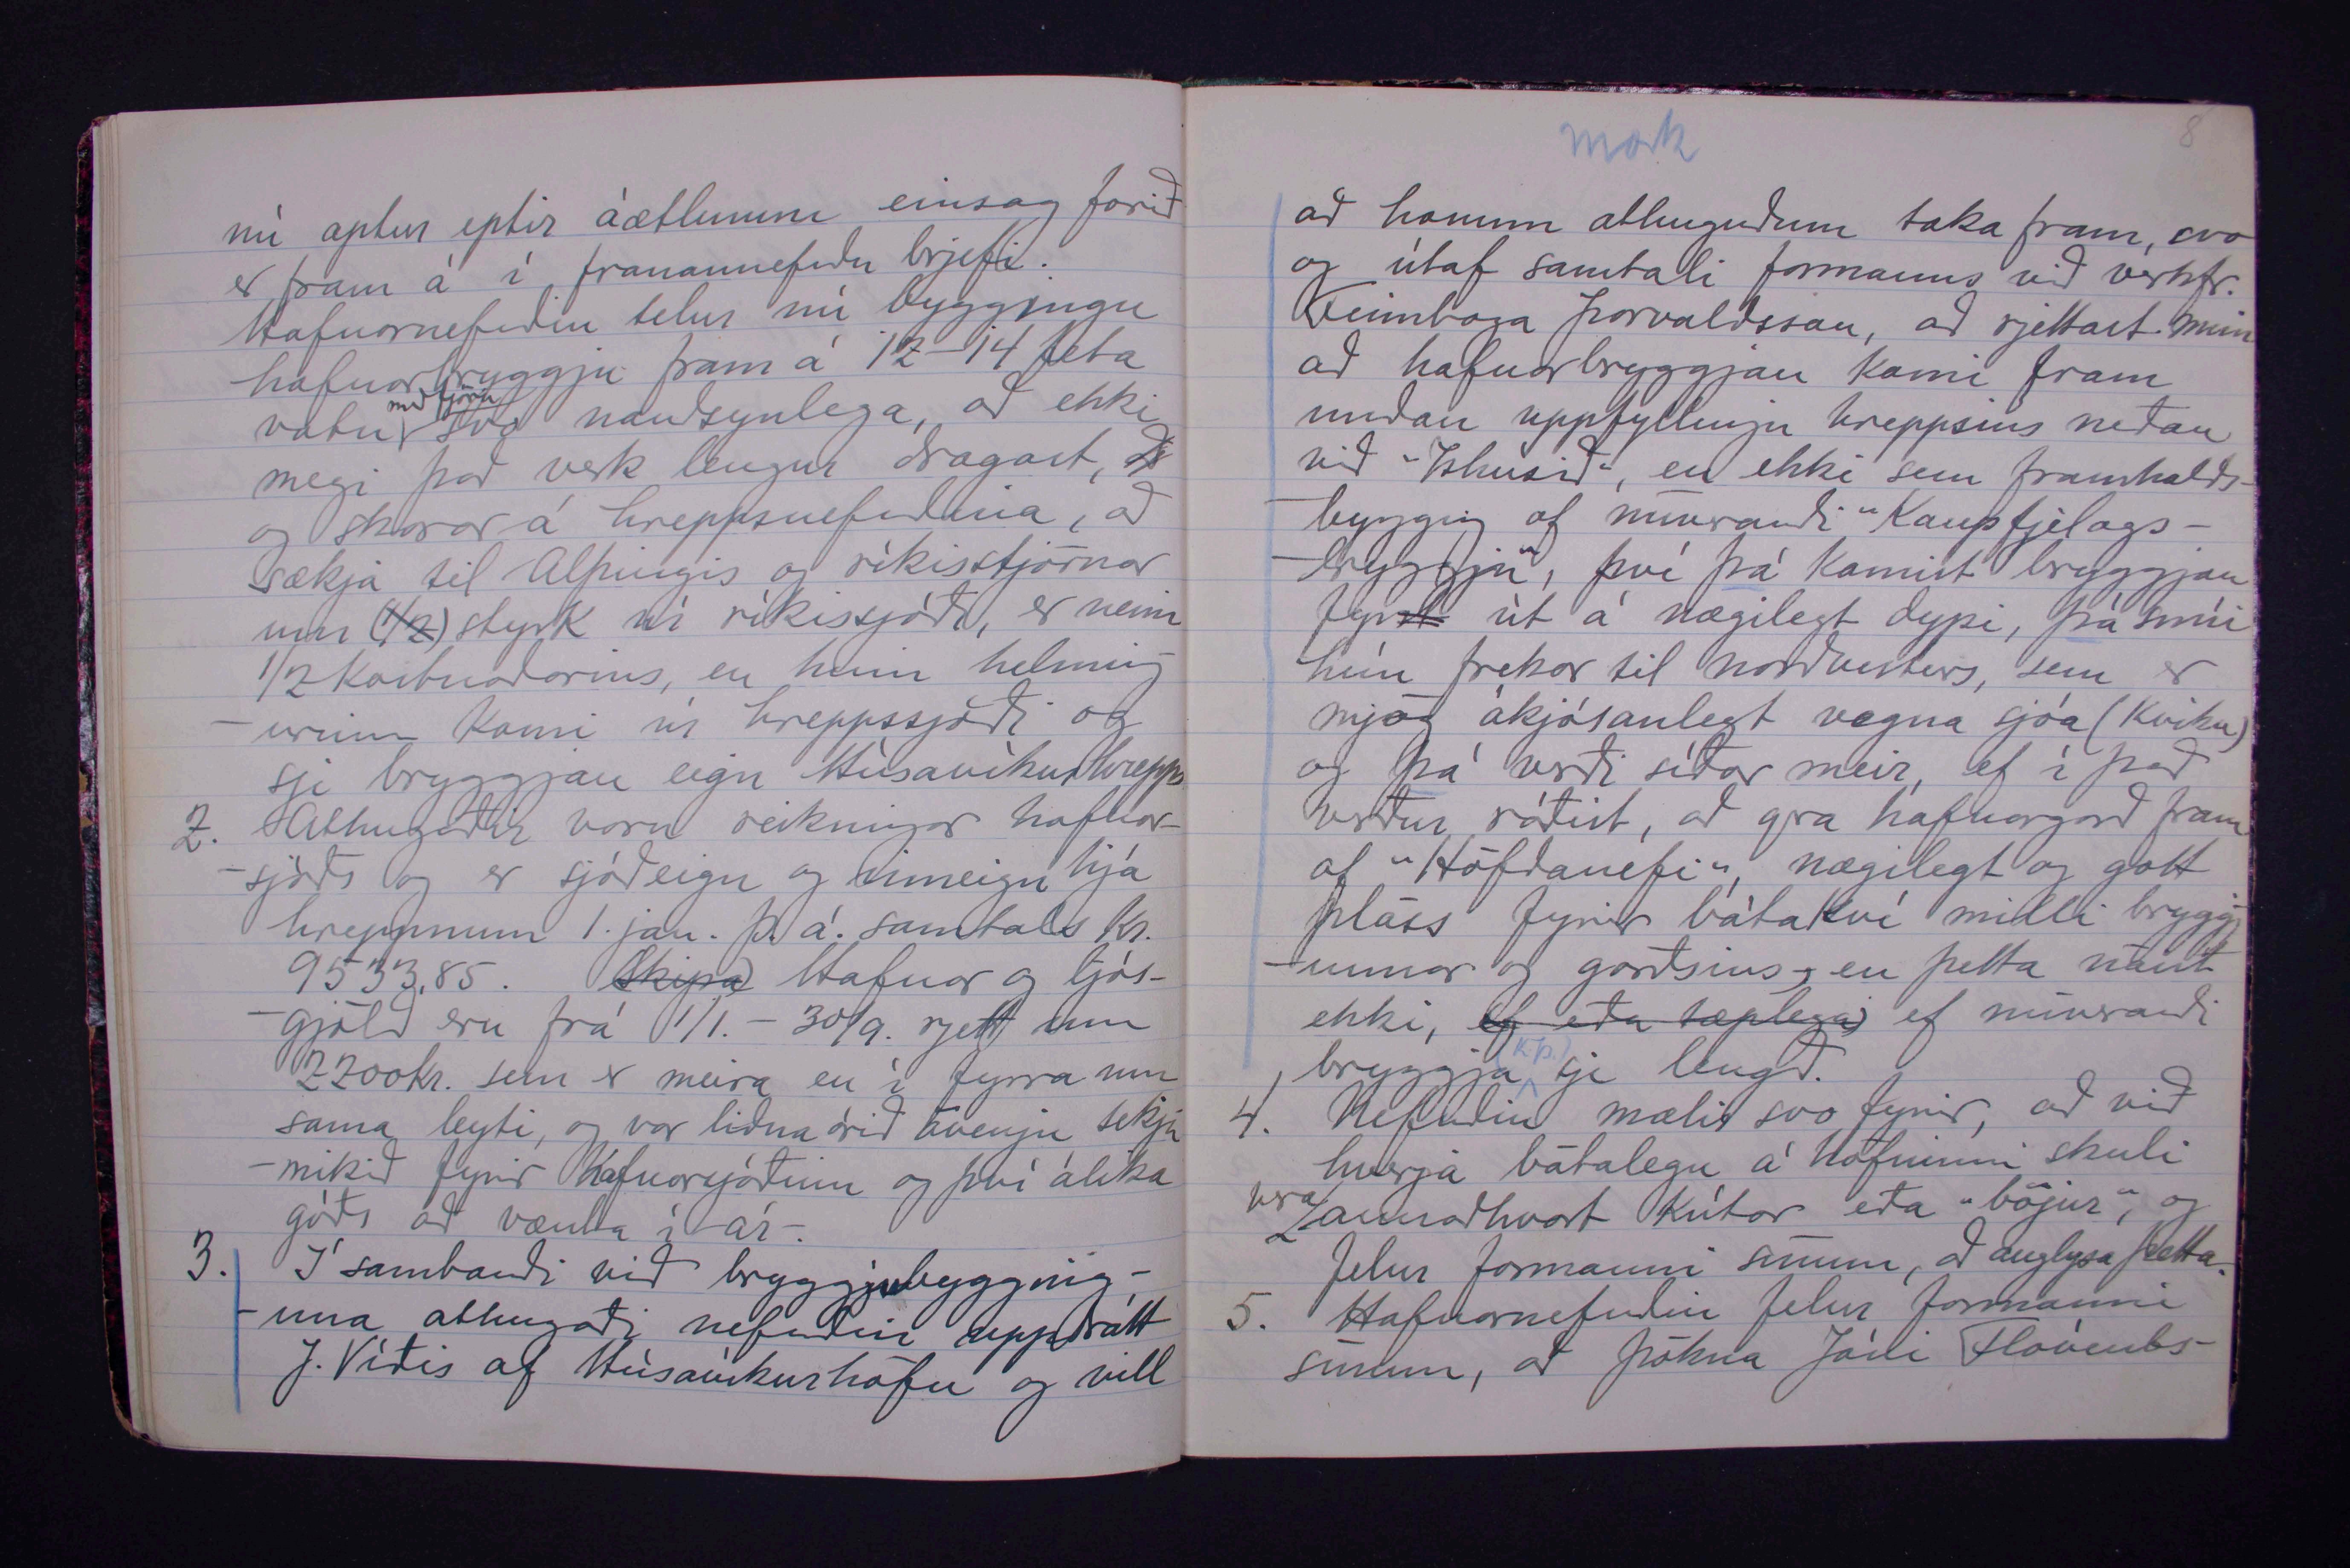 nú aptur eptir áætlunum einsog farið
er fram á í framannefndu brjefi.
Hafnarnefndin telur nú byggingu
hafnarbryggju fram á 12-14 feta
með fjöru
vatn svo nauðsynlega, að ekki
megi það verk lengur dragast,
og skorar á hreppsnefndina, að
sækja til Alþingis og ríkisstjórnar
um (1/2) styrk úr ríkissjóði, er nemi
1/2 kostnaðarins, en hinn helming-
-urinn komi úr hreppssjóði og
sje bryggjan eign Húsavíkurhrepps.
2. Athugaðir voru reikningar hafnar-
-sjóðs og er sjóðeign og inneign hjá
hreppnum 1. jan. þ. á. samtals kr.
9533,85. (Skipa) Hafnar og ljós-
-gjöld eru frá 1/1. - 30/9. rjett um
2200kr. sem er meira en í fyrra um
sama leyti, og var liðna árið óvenju tekju
-mikið fyrir hafnarsjóðinn og því álíka
góðs að vænta í ár.
3. Í sambandi við bryggjubygging-
-una athugaði nefndin uppdrátt
J. Víðis af Húsavíkurhöfn og vill
mork
8
að honum athuguðum taka fram, svo
og útaf samtali formanns við verkfr.
Finnboga Þorvaldsson, að rjettast mun
að hafnarbryggjan komi fram
undan uppfyllingu hreppsins neðan
við "Ishúsið", en ekki sem framhalds-
-bygging af núverandi "Kaupfjelags-
-bryggju", því þá kemist bryggjan
fyrst út á nægilegt dypi, þá snúi
hún frekar til norðvesturs, sem er
mjög ákjósanlegt vegna sjóa (Kviku)
og þá verði síðar meir, ef í það
verður ráðist, að gera hafnargarð fram
af "Höfðanefi", nægilegt og gott
pláss fyrir bátakví milli bryggj
-unnar og garðsins, en þetta náist
ekki, ef eða tæplega) ef núverandi
(K.Þ.)
bryggja sje lengd.
4. Nefndin mælir svo fyrir, að við
hverja bátalegu á höfninni skuli
vera annaðhvort kútar eða "böjur", og
felur formanni sínum, að auglysa þetta.
5. Hafnarnefndin felur formanni
sínum, að þakka Jóni Flóvents-